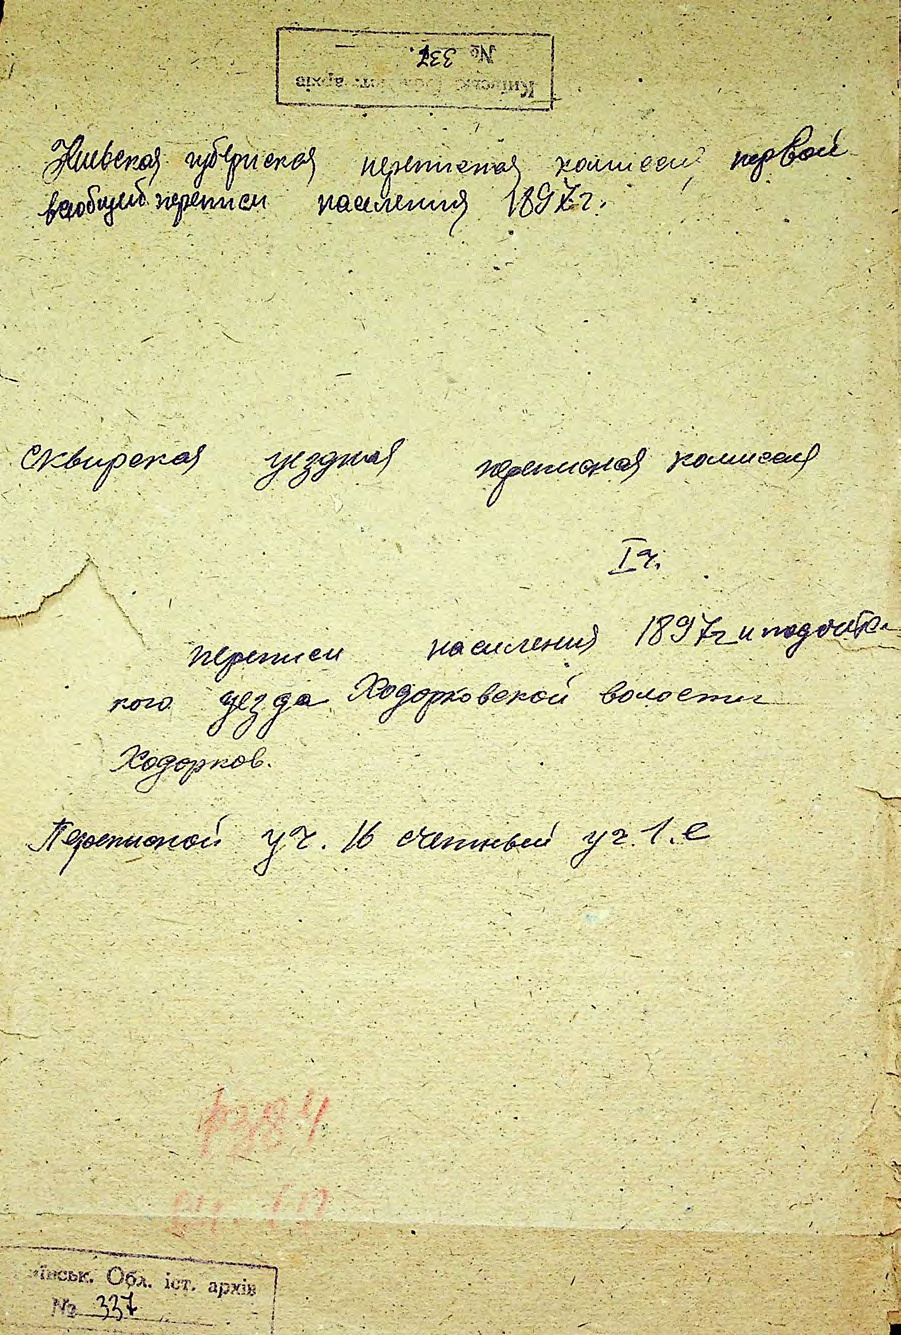 Київськ. Обл. іст. архів
№ 337.
Киевская губернская переписная комиссия первой
всеобщей переписи населения 1897г.
Сквирская уездная переписная комиссия
I ч.
переписи населения 1897г и
кого уезда Ходорковской волости
Ходорков.
Переписной уч. 16 счетный уч. 1. е
ф 384
їнськ. Обл. іст. архів
№ 337